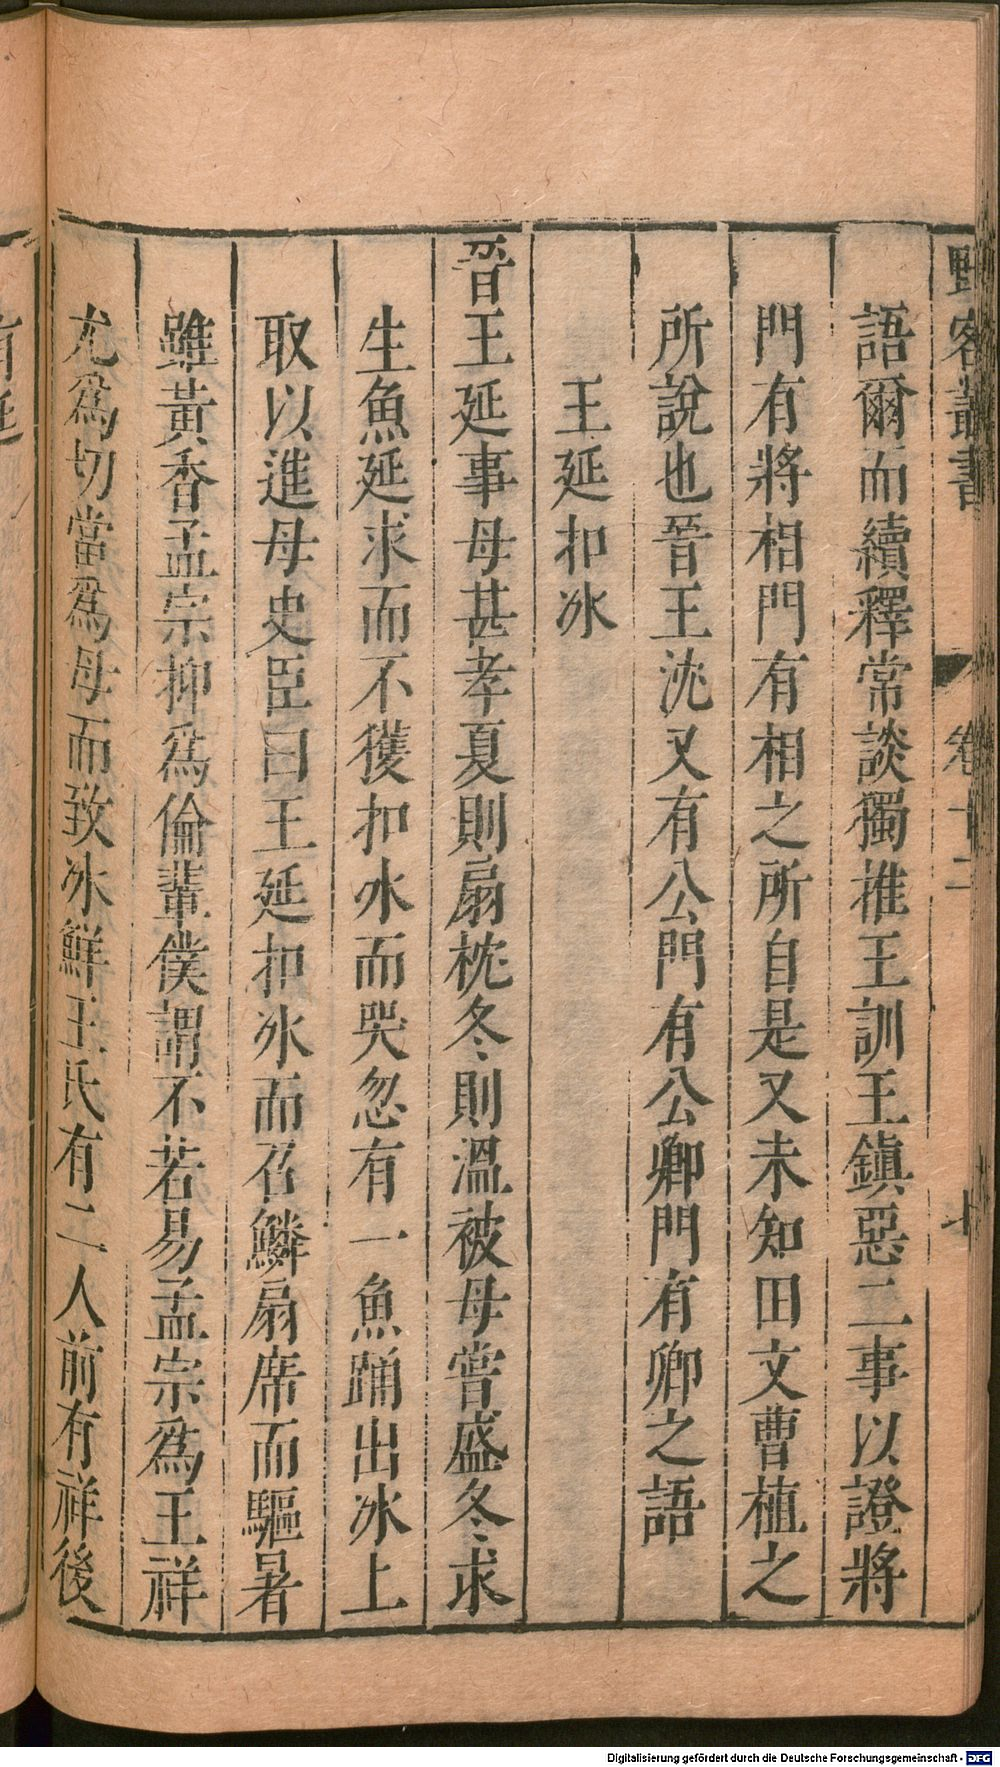 野客叢書 卷十二 七
語爾而續釋常談獨推王訓王鎭惡二事以證將
門有將相門有相之所自是又未知田文曹植之
所說也晉王沈又有公門有公卿門有卿之語
王延扣冰
晉王延事母甚孝夏則扇枕冬則溫被母嘗盛冬求
生魚延求而不獲扣冰而哭忽有一魚踊出冰上
取以進母史臣曰王延扣冰而召鱗扇席而驅暑
雖黃香孟宗抑爲倫輩僕謂不若易孟宗爲王祥
尤爲切當爲母而致冰鮮王氏有二人前有祥後
有延
Digitalisierung gefördert durch die Deutsche Forschungsgemeinschaft - DFG